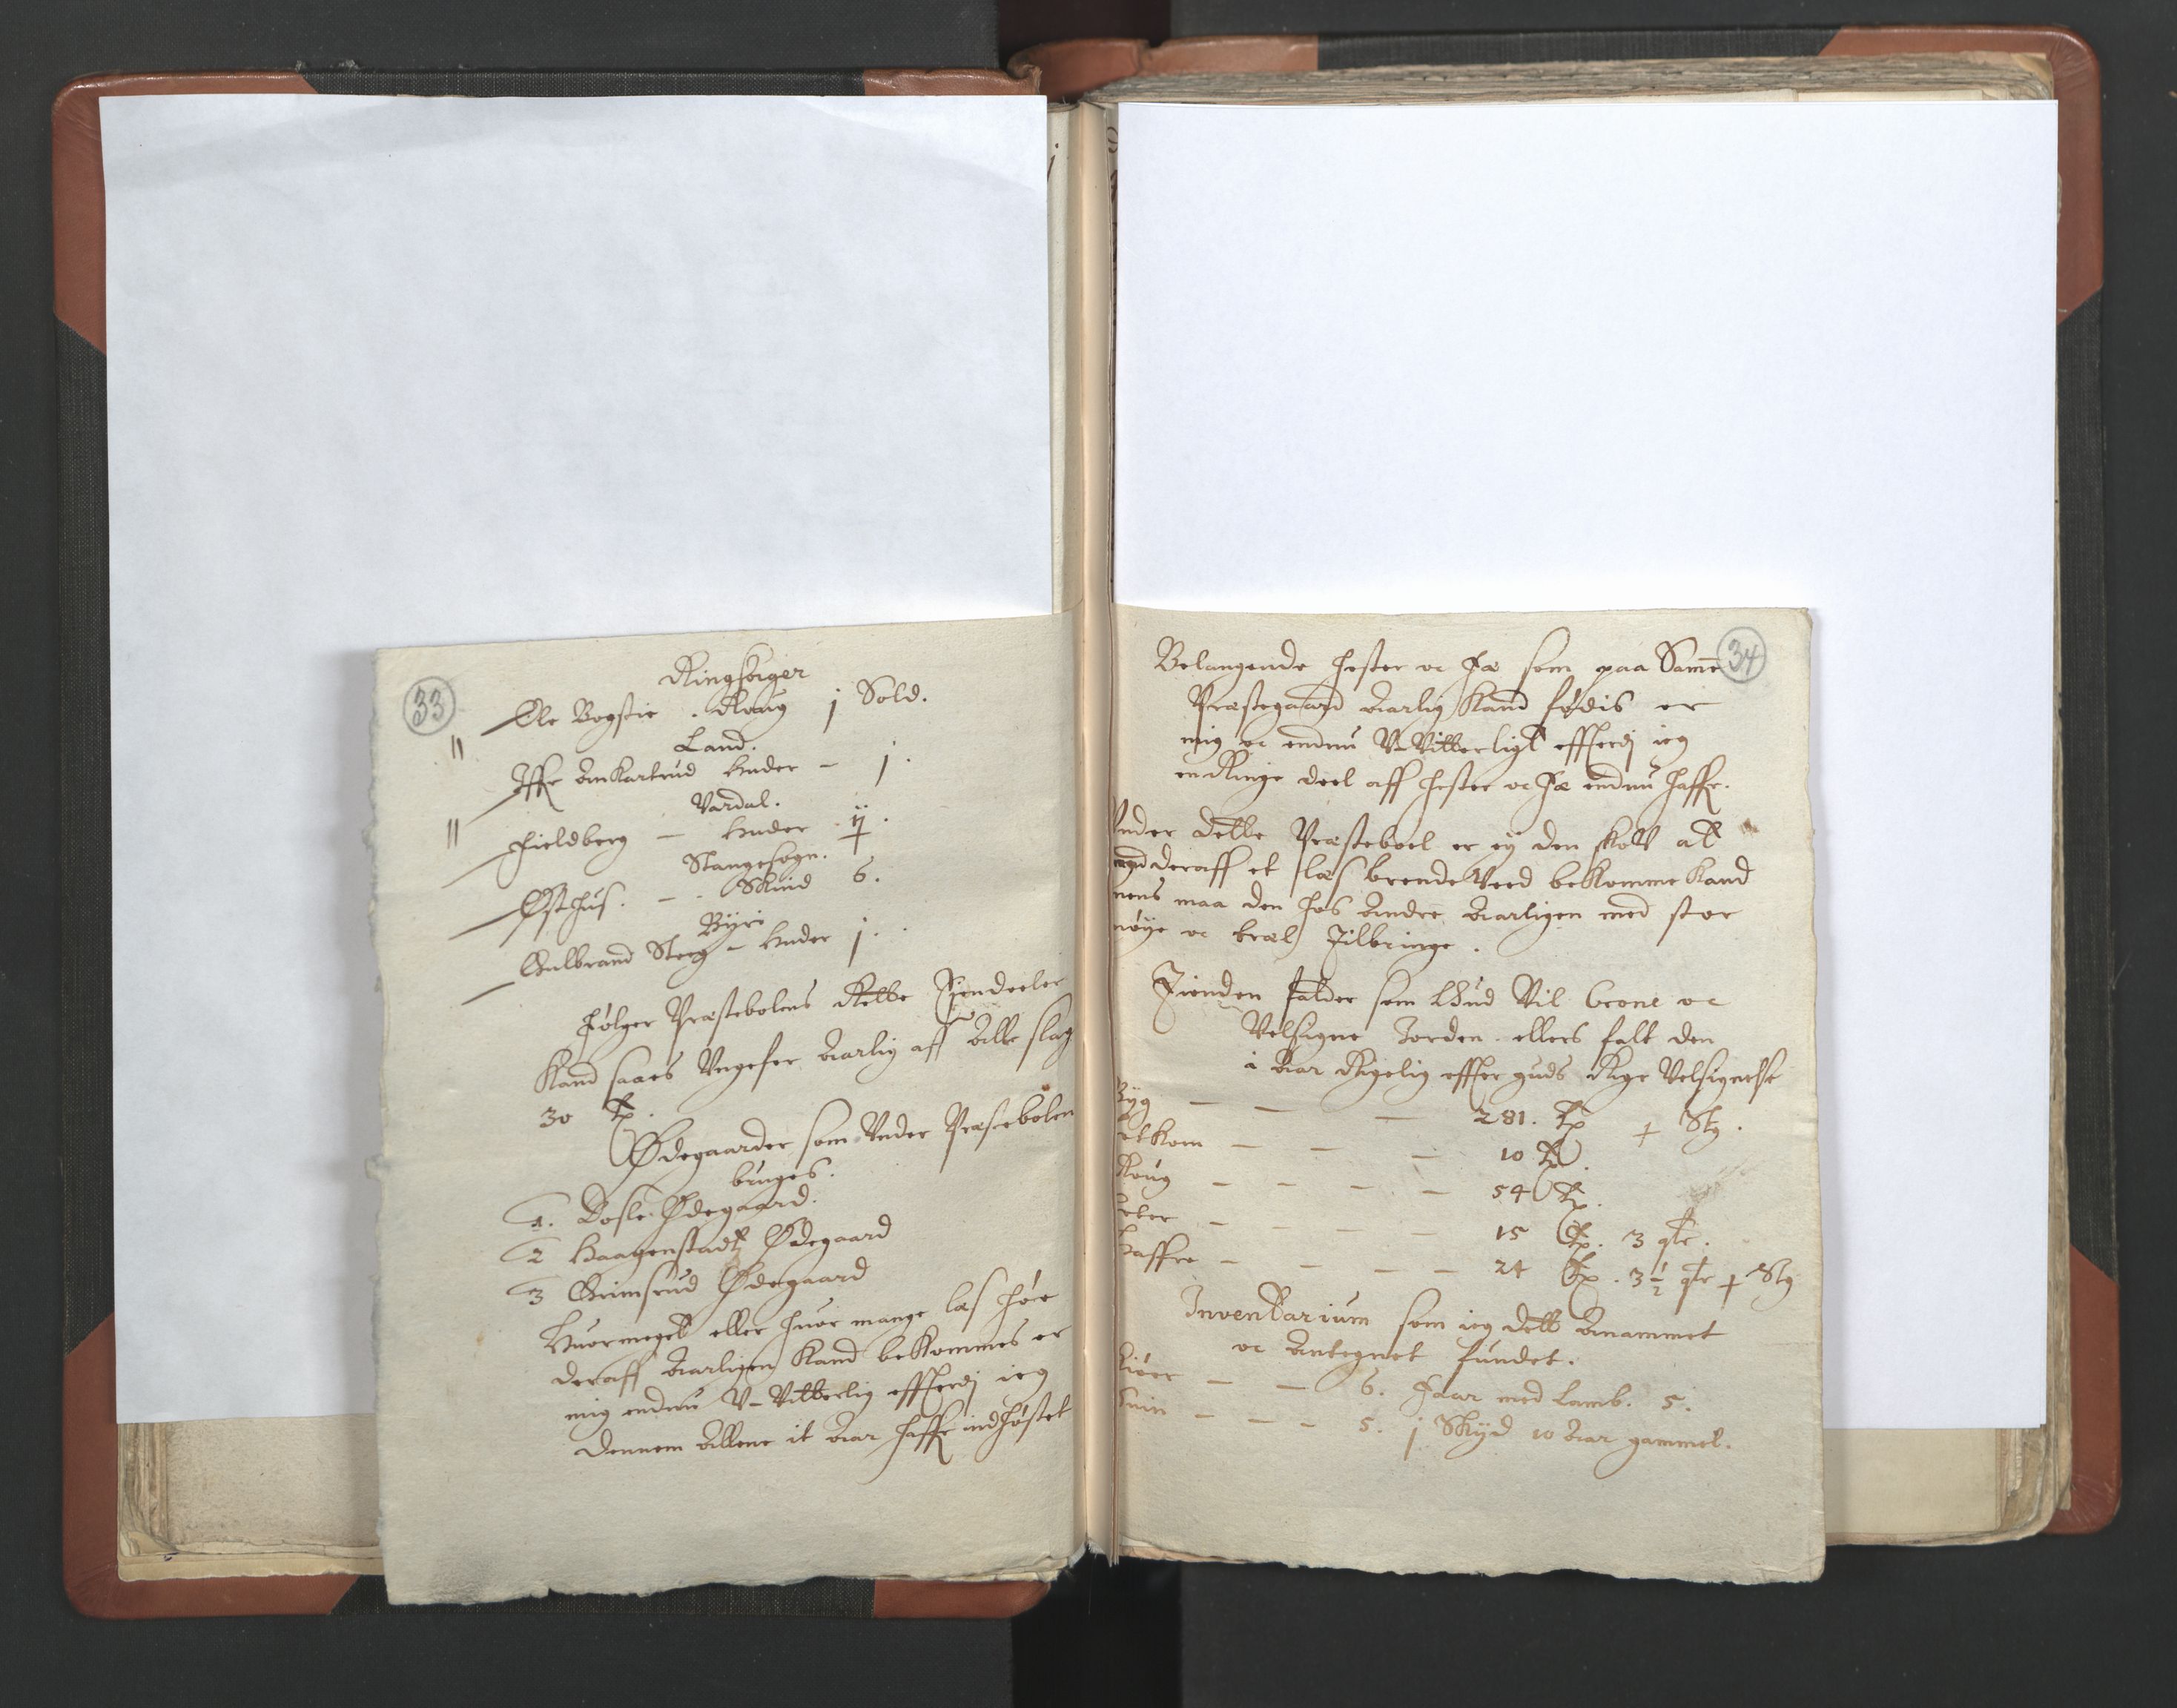 33
Ringsager
Ole Bogstie . Roug j Sold.
Land.
Iffr Ankartrud Huder – j .
Vardal.
Fieldberg – Huder ij .
Stangesogn.
Østhus. – . Skind 6.
Byri
Gulbrand Steeg – Huder j .
Følger Præstebolens Rette
Kand saaes Ungefer Aarlig aff Alle slag
30 tp.
Ødegaarder som Under Præstebolen
bruges.
1. Dosle Ødegaard.
2 Haagenstadt Ødegaard
3 Grimsrud Ødegaard
Huormeget eller huor mange læs høe
deraff Aarligen Kand bekommes er
mig endnu V-Vitterlig effterdj ieg
dennem Allene it Aar haffr indhøstet
34
Belangende Hester oc Fæ som paa Samē
Præstegaard Aarlig Kand fødis er
mig oc endnu V-Vitterligt effterdj ieg
en Ringe deel aff Hester oc Fæ endnu haffr.
Under dette Præsteboel er ey den skow at
mand deraff et læs brende Veed bekomme Kand
mens maa den hos Andre Aarligen med stor
møye oc træl Tilbringe .
Tienden falder som Gud Vil Crone oc
Velsigne Jorden . ellers falt den
i Aar Rigelig effter guds Rige Velsignelse
Byg – – – 281. tp + Stg .
– – 10 tp .
Roug – – – – 54 tp .
– – – – 15 tp . 3 qtr .
Haffre – – – – 24 tp . 3½ qtr + Stg
Inventarium som ieg dett Anammet
oc Antegnet fundet .
Kiøer – – 6. Faar med Lamb. 5.
Suin – – – 5. j Skyd 10 Aar gammel.